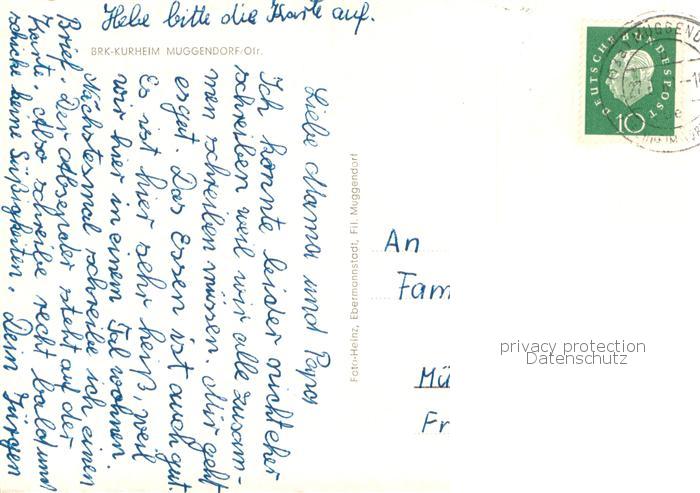 Hebe bitte die Karte auf.
BRK-KURHEIM MUGGENDORF/Ofr.
Liebe Mama und Papa
Ich konnte leider nicht eher
schreiben weil wir alle zusam-
men schreiben müssen. Mir geht
es gut. Das Essen ist auch gut.
Es ist hier sehr heiß, weil
wir hier in einem Tal wohnen.
Nächstesmal schreibe ich einen
Brief. Der Absender steht auf der
Karte. Also schreibe recht bald und
schicke keine Süßigkeiten. Dein Jürgen
Foto-Heinz, Ebermannstadt, Fil. Muggendorf
An
Fam
Mü
Fr
DEUTSCHE BUNDESPOST
10
MUGGEND
privacy protection
Datenschutz